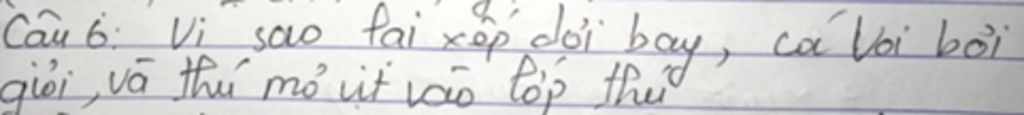 Câu 6: Vì sao lại xếp dơi bay, cá Voi bơi
giỏi, và thú mỏ vịt vào lớp thú